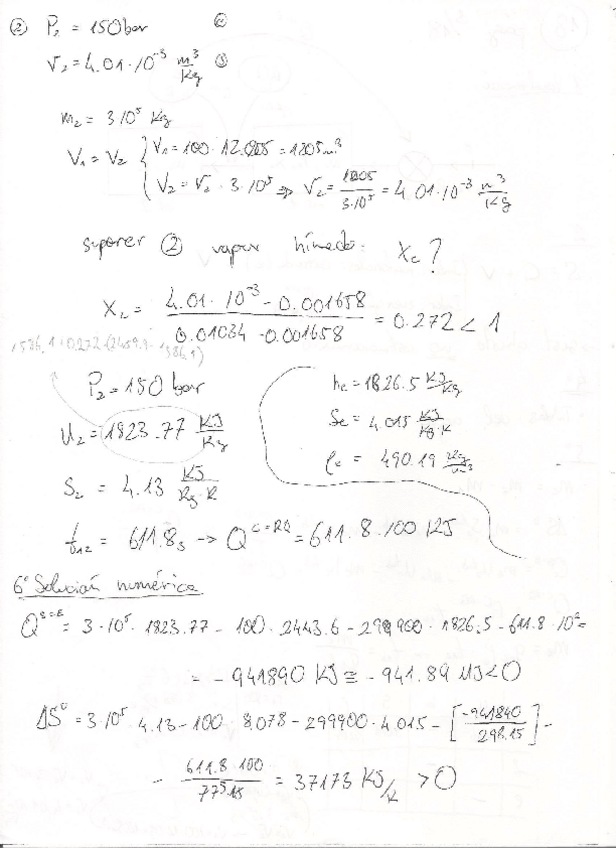 ② P₂ = 150 bar
V₂ = 4.01·10⁻³ m³/Kg ③
m₂ = 3·10⁵ Kg
V₁ = V₂ { V₁ = 100·12.05 = 1205 m³
V₂ = V₂·3·10⁵ ⇒ V₂ = 1205/3·10⁵ = 4.01·10⁻³ m³/Kg
suponer ② vapor húmedo: X₂?
X₂ = (4.01·10⁻³ - 0.001658)/(0.01034 - 0.001658) = 0.272 < 1
P₂ = 150 bar
U₂ = 1823.77 KJ/Kg
S₂ = 4.13 KJ/Kg·K
t₁₂ = 611.8 s → Q = 611.8·100 KJ
he = 1826.5 KJ/Kg
Se = 4.015 KJ/Kg·K
ρe = 490.19 Kg/m³
6° Solución numérica
Q = 3·10⁵·1823.77 - 100·2443.6 - 299900·1826.5 - 611.8·10² =
= -941890 KJ ≅ -941.89 MJ < 0
ΔS⁰ = 3·10⁵·4.13 - 100·8.078 - 299900·4.015 - [-941840/298.15] -
- 611.8·100/775.15 = 37173 KJ/K > 0